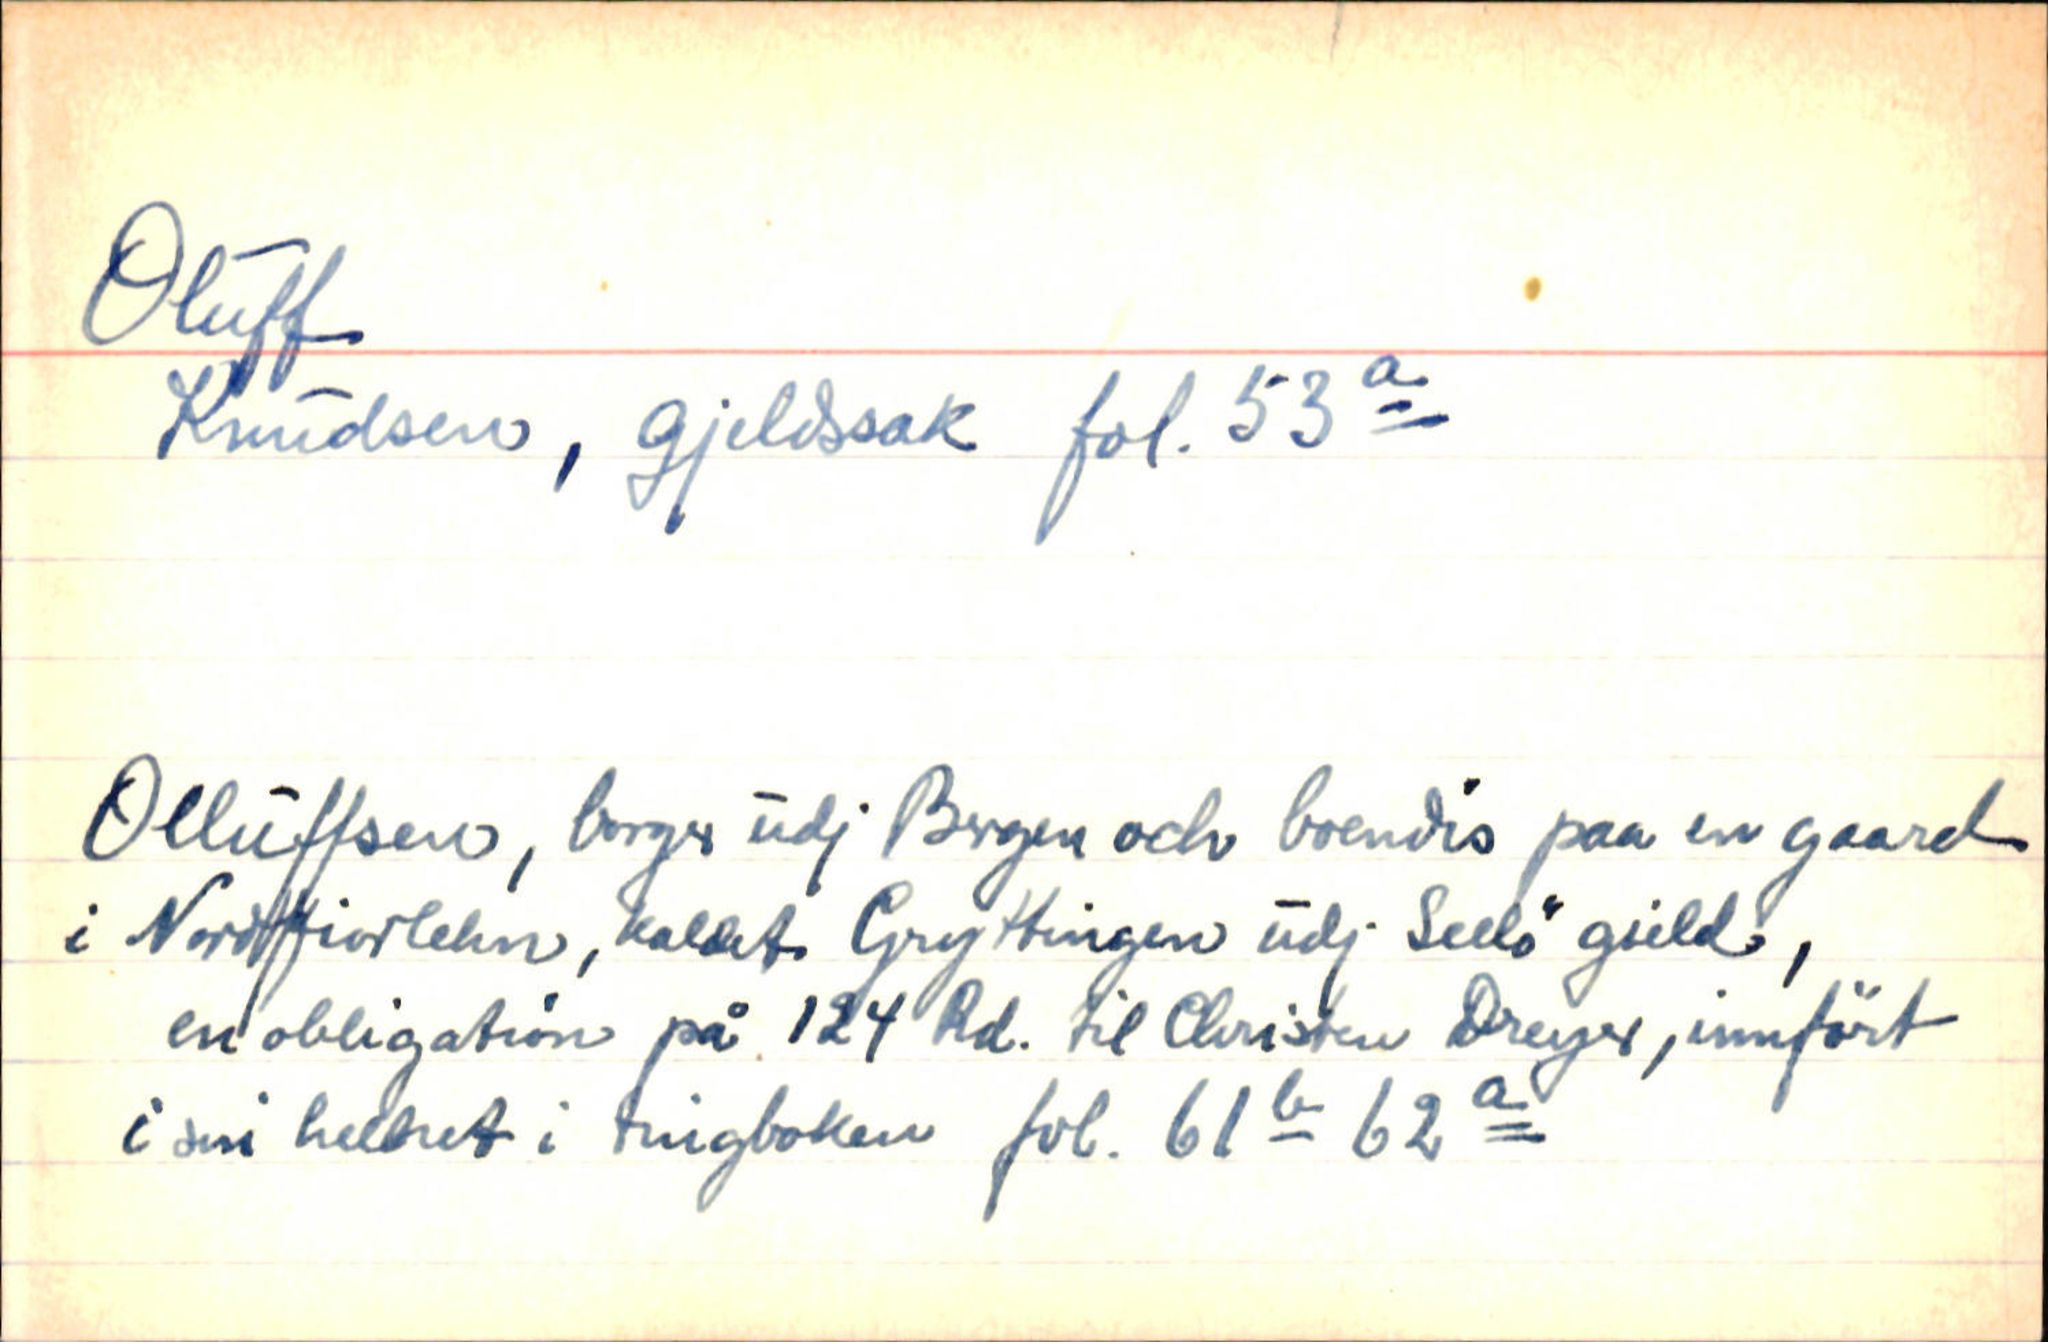 Oluff
Knudsen, gjeldssak fol. 53a
Olluffsen, borger udj Bergen och boendis paa en gaard
i Nordffiorlehn, kaldet Gryttingen udj Seelö gield,
en obligation på 124 Rd. til Christen Dreyer, innført
i sin helhet i tingboken fol. 61b 62a